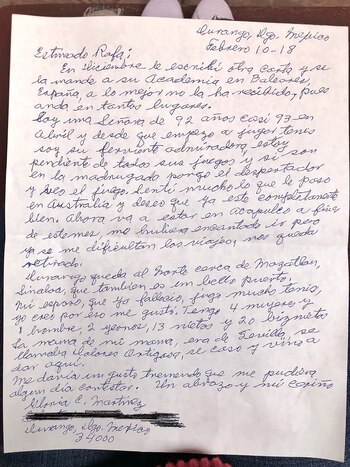 Durango, Dgo. Mexico
Febrero 10-18
Estimado Rafa;
En Diciembre le escribí otra carta y se
la mande a su Academia en Baleares,
España, a lo mejor no la ha recibido, pues
anda en tantos lugares.
Soy una Señora de 92 años casi 93 en
Abril y desde que empezo a jugar tenis
soy su ferviente admiradora, estoy
pendiente de todos sus juegos y si son
en la madrugada pongo el despertador
y veo el juego. Sentí mucho lo que le paso
en Australia y deseo que ya este completamente
bien. Ahora va a estar en Acapulco a fines
de este mes, me hubiera encantado ir pero
ya se me dificultan los viajes, nos queda
retirado.
Durango queda al Norte cerca de Mazatlan,
Sinaloa, que tambien es un bello puerto.
Mi esposo, que ya fallecio, jugo mucho tenis,
yo creo por eso me gusta. Tengo 4 mujeres y
1 hombre, 2 yernos, 13 nietos y 20 biznietos
La mamá de mi mamá, era de Sevilla, se
llamaba Dolores Ortigosa, se caso y vino a
dar aquí.
Me daría un gusto tremendo que me pudiera
algun día contestar. Un abrazo y mi cariño
Gloria C. Martinez
Durango, Dgo. Mexico
34000